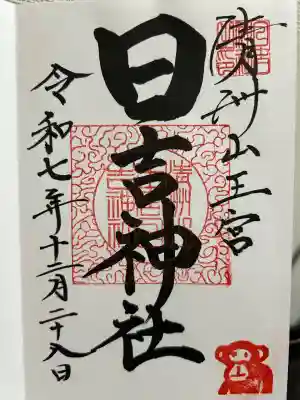 清洲山王宮
日吉神社
令和七年十二月二十八日